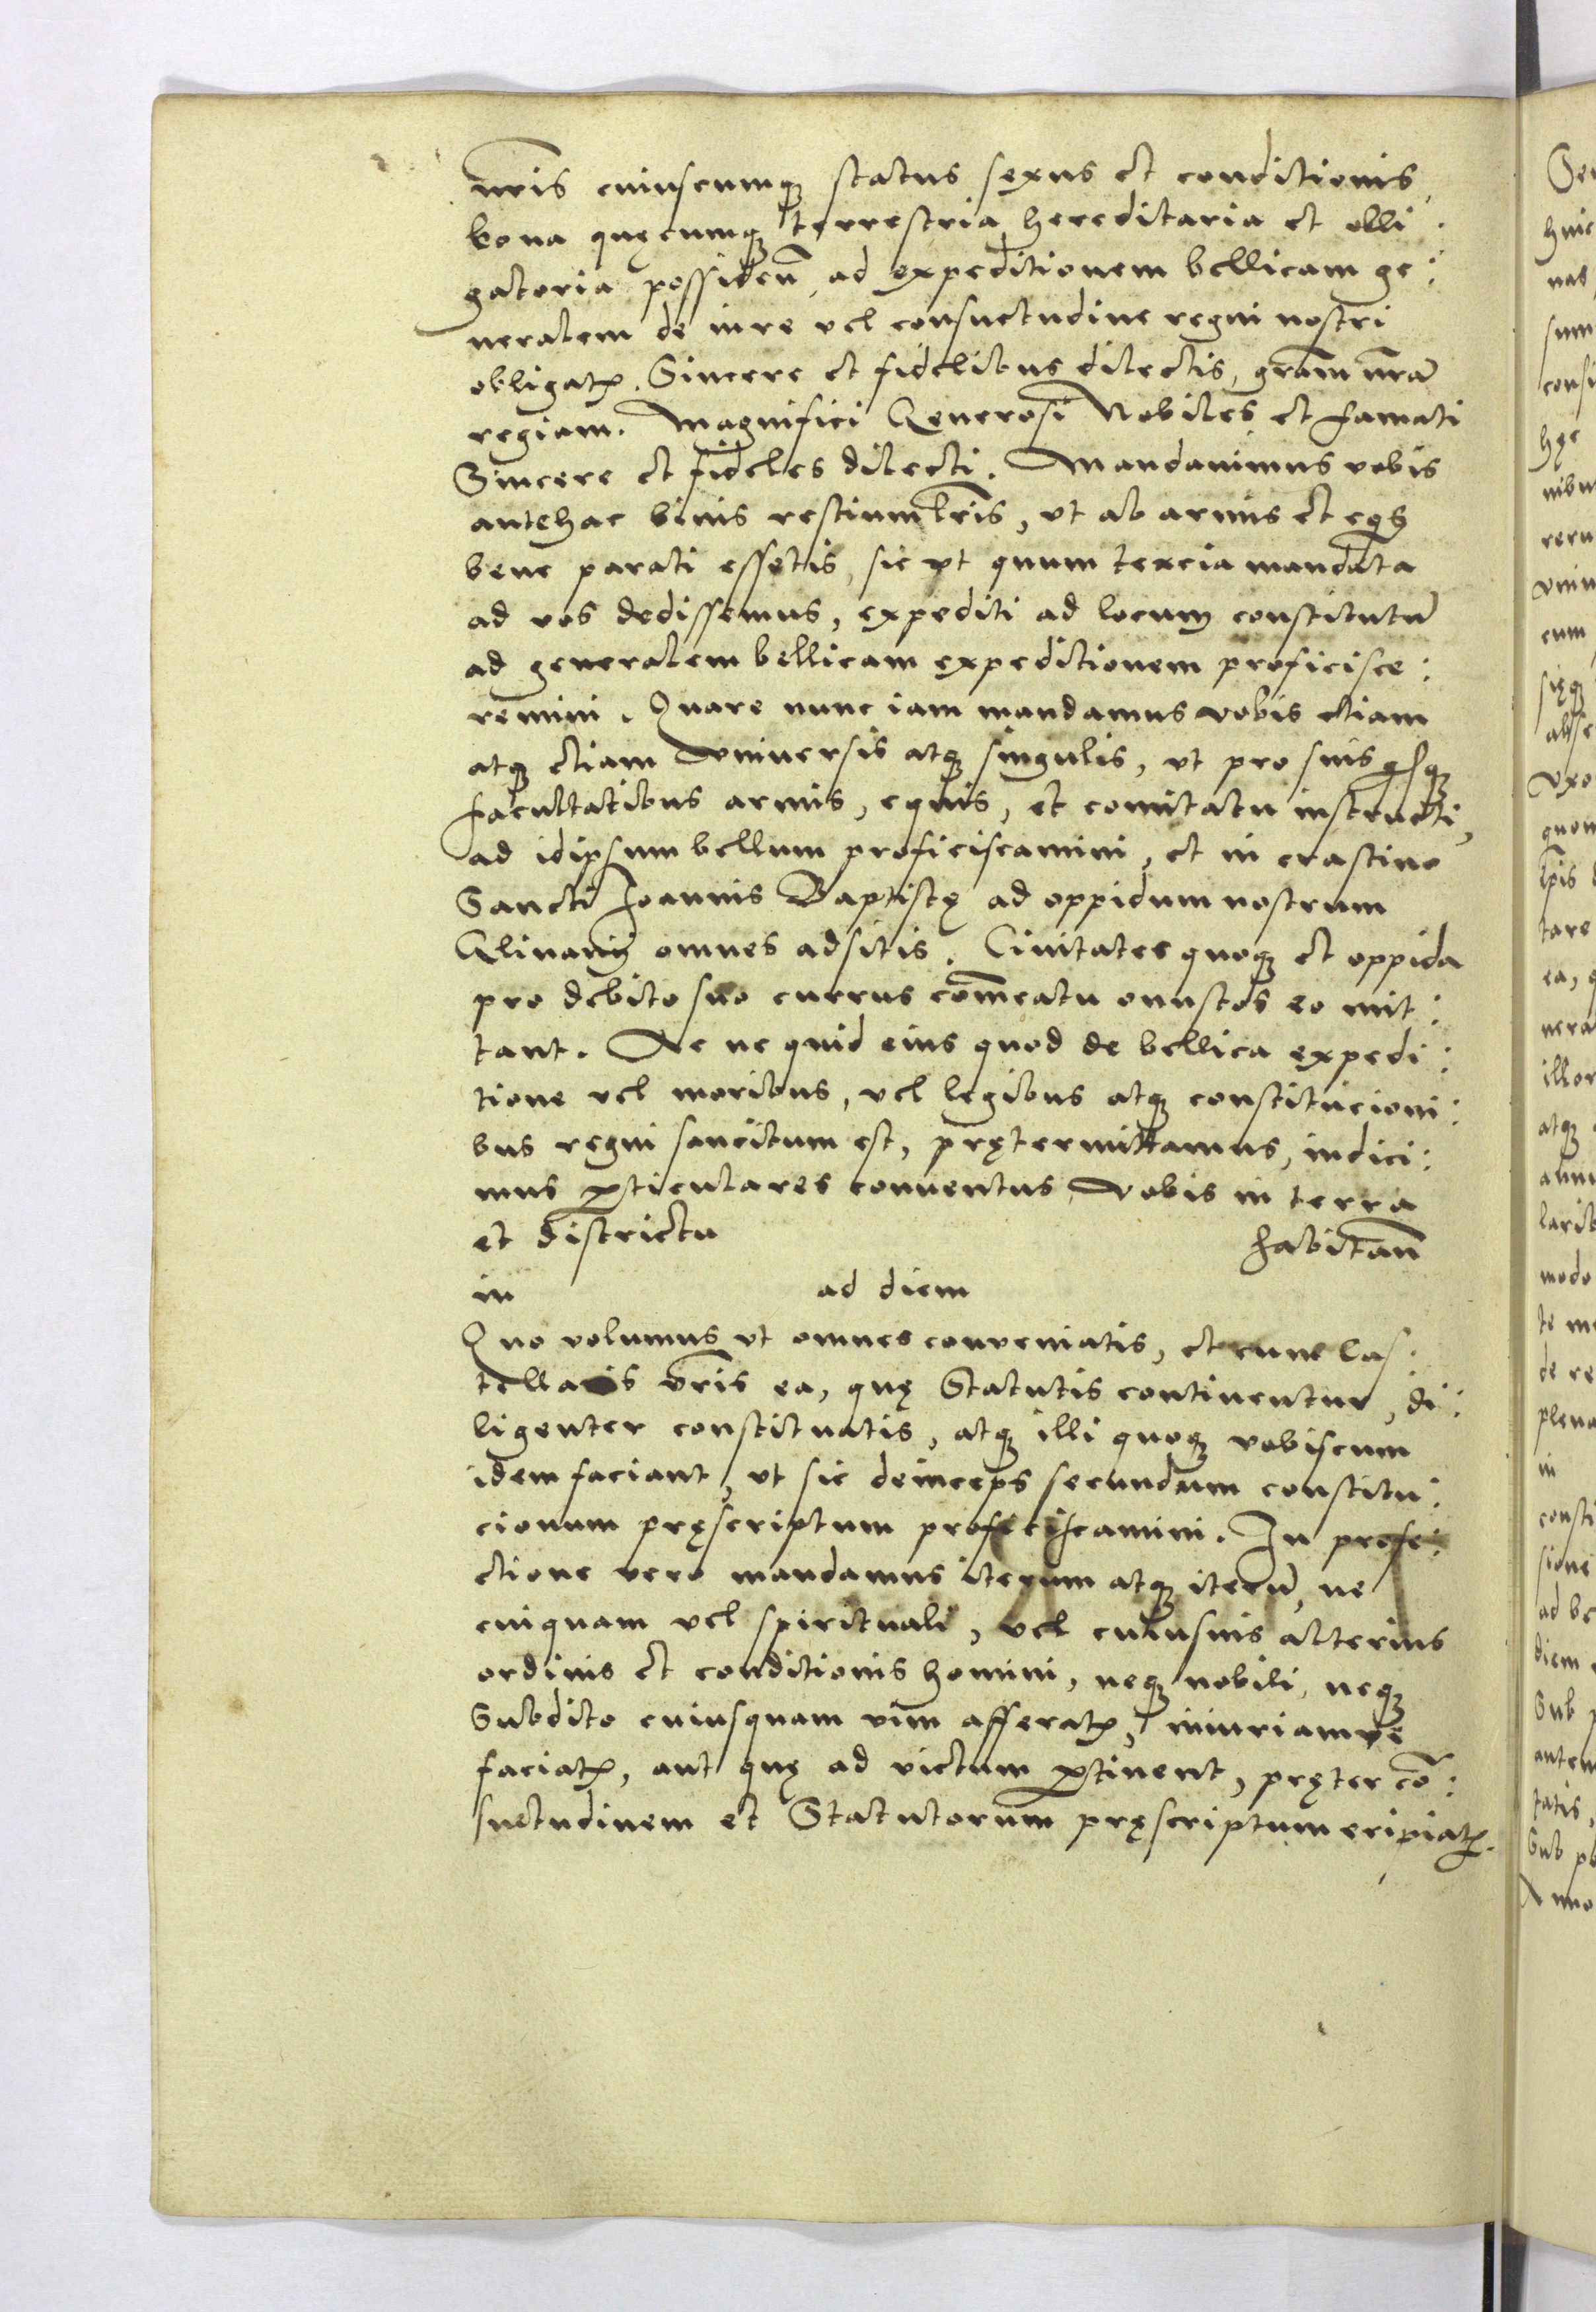 nr̃is cuiuscumqꝫ status sexus et conditionis,
bona quęcumqꝫ terrestria hereditaria et obli:
gatoria possideñ, ad expeditionem bellicam ge:
neralem de iure vel consuetudine regni nostri
obligatꝭ. Sincere et fidelibus dilectis, gr̃am nr̃ã
regiam. Magnifici Generosi Nobiles et famati
Sincere et fideles dilecti. Mandauimus vobis
antehac binis restium lr̃is, vt ab armis et eqs
bene parati essetis, sic vt quum tercia mandata
ad vos dedissemus, expediti ad locum constitutũ
ad generalem bellicam expeditionem proficisce:
remini. Quare nunc iam mandamus vobis etiam
atqꝫ etiam vniuersis atqꝫ singulis, vt pro suis qsqꝫ
facultatibus armis, equis, et comitatu instructi,
ad idipsum bellum proficiscamini, et in crastino
Sancti Joannis Baptistę ad oppidum nostrum
Glinany omnes adsitis. Ciuitates quoqꝫ et oppida
pro debito suo currus com̃eatu onustos eo mit:
tant. Ac ne quid eius quod de bellica expedi:
tione vel moribus, vel legibus atqꝫ constitucioni:
bus regni sancitum est, prętermittamus, indici:
mus ꝑticulares conuentus vobis in terra
et districtu habitañ
in ad diem
Quo volumus vt omnes conveniatis, et cum Cas:
tellanis vr̃is ea, quę Statutis continentur, di:
ligenter constituatis, atqꝫ illi quoqꝫ vobiscum
idem faciant, vt sic deinceps secundum constitu:
cionum pręscriptum proficiscamini. In profe:
ctione vero mandamus iterum atqꝫ iterũ, ne
cuiquam vel spirituali, vel cuiusuis alterius
ordinis et conditionis homini, neqꝫ nobili, neqꝫ
Subdito cuiusquam vim afferatꝭ, iniuriamve
faciatꝭ, aut quę ad victum ꝑtinent, pręter cõ:
suetudinem et Statutorum pręscriptum eripiatꝭ.